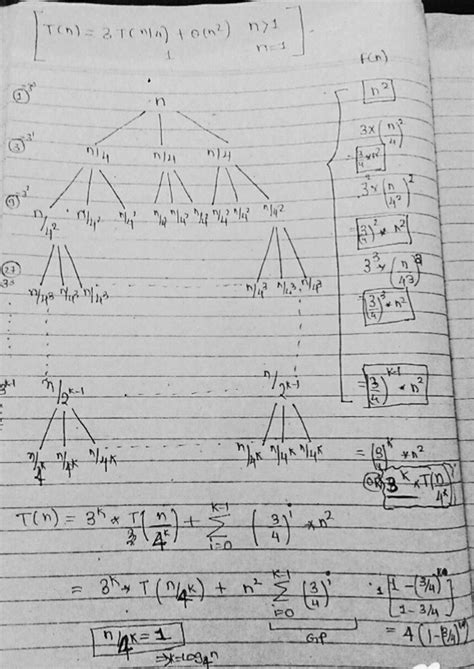 T(n) = 3T(n/4) + O(n²) n>1
1 n=1
F(n)
① 3⁰ n n²
③ 3¹ n/4 n/4 n/4 3×(n/4)²
3/4 * n²
⑨ 3² n/4² n/4² n/4² n/4² n/4² n/4² n/4² n/4² n/4² 3² * (n/4²)²
(3/4)² * n²
㉗ 3³ n/4³ n/4³ n/4³ n/4³ n/4³ n/4³ 3³ * (n/4³)²
(3/4)³ * n²
3^(k-1) n/2^(k-1) n/2^(k-1) = (3/4)^(k-1) * n²
n/4^k n/4^k n/4^k n/4^k n/4^k n/4^k = (3/4)^k * n²
3^k * T(n/4^k)
T(n) = 3^k * T(n/4^k) + Σ_(i=0)^(k-1) (3/4)^i * n²
= 3^k * T(n/4^k) + n² Σ_(i=0)^(k-1) (3/4)^i
GP
1[1-(3/4)^k / 1-3/4]
= 4(1-(3/4)^k)
n/4^k = 1
⇒ k = log₄n